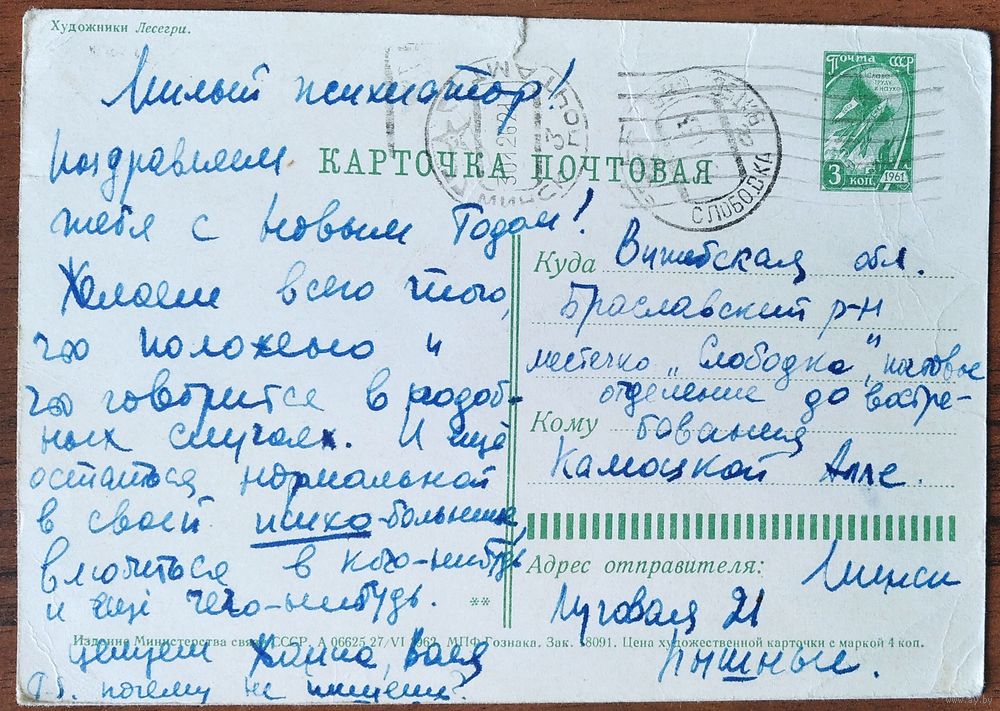 Художники Лесегри.
Милый психиатор!
Поздравляем
тебя с Новым Годом!
Желаем всего того,
что положено и
что говорится в подоб-
ных случаях. И ещё
остаться нормальной
в своей психо-больнице,
влюбиться в кого-нибудь
и ещё чего-нибудь.
целуем Жанна, Валя
P.S. почему не пишешь?
КАРТОЧКА ПОЧТОВАЯ
МИНСК
СЛОБОДКА
Почта СССР
3 коп
1961
Куда Витебская обл.
Браславский р-н
местечко „Слободка", почтовое
отделение до востре-
бования
Кому
Камоцкой Алле.
Адрес отправителя: Минск
Луговая 21
**
Издание Министерства связи СССР. А 06625 27/VI 1962. МПФ Гознака. Зак. 18091. Цена художественной карточки с маркой 4 коп.
www.ay.by